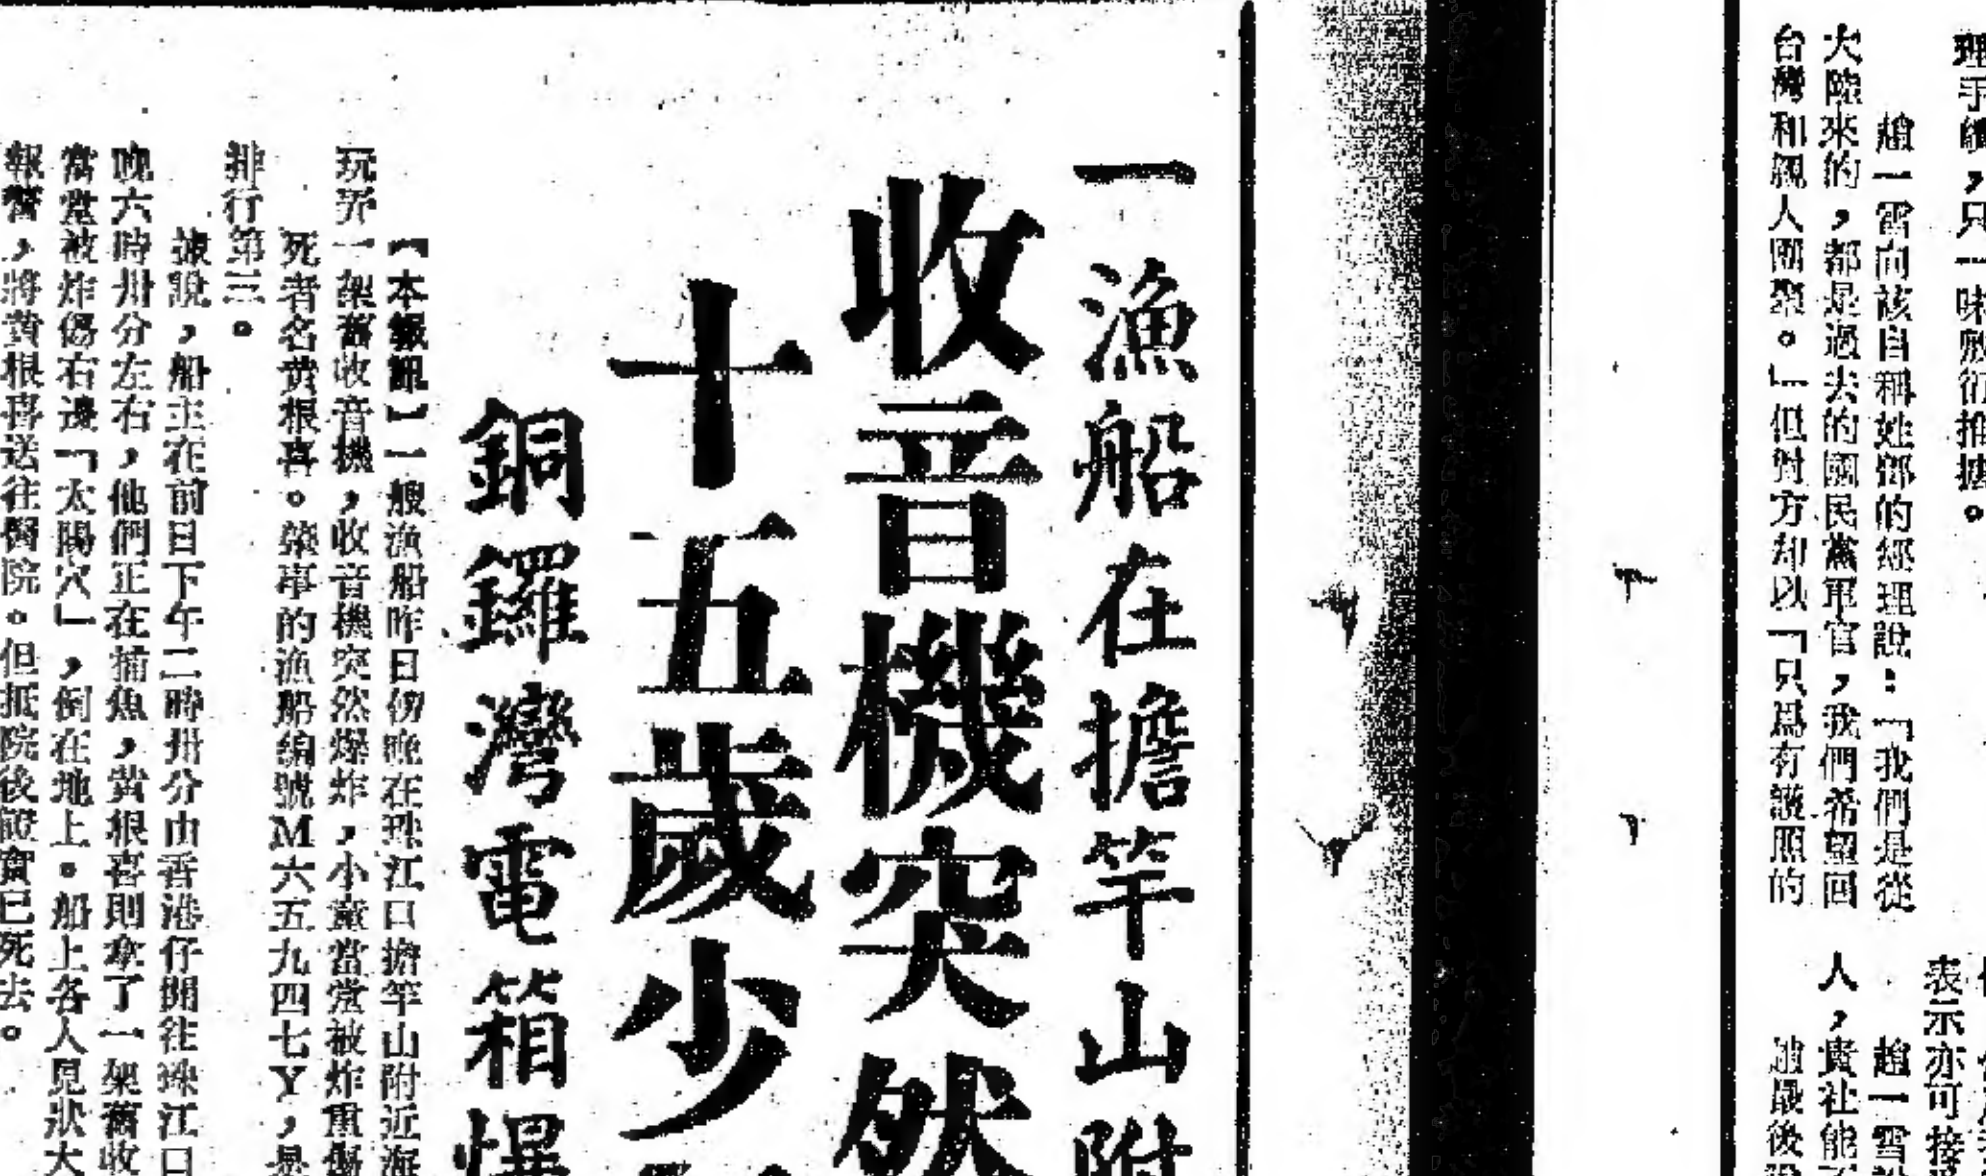 理手續,只一味敷衍推搪。
趙一雷向該自稱姓鄧的經理說:「我們是從
大陸來的,都是過去的國民黨軍官,我們希望回
台灣和親人團聚。」但對方却以「只爲有護照的
表示亦可接
趙一雪
人,貴社能
趙最後
一漁船在擔竿山附
收音機突然
十五歲少
銅鑼灣電箱爆
【本報訊】一艘漁船昨日傍晚在珠江口擔竿山附近海
玩弄一架舊收音機,收音機突然爆炸,小童當堂被炸重傷
死者名黄根喜。肇事的漁船編號M六五九四七Y,是
排行第三。
據說,船主在前日下午二時卅分由香港仔開往珠江口
晚六時卅分左右,他們正在捕魚,黄根喜則拿了一架舊收
當堂被炸傷右邊「太陽穴」,倒在地上。船上各人見狀大
報警,將黄根喜送往醫院。但抵院後證實已死去。